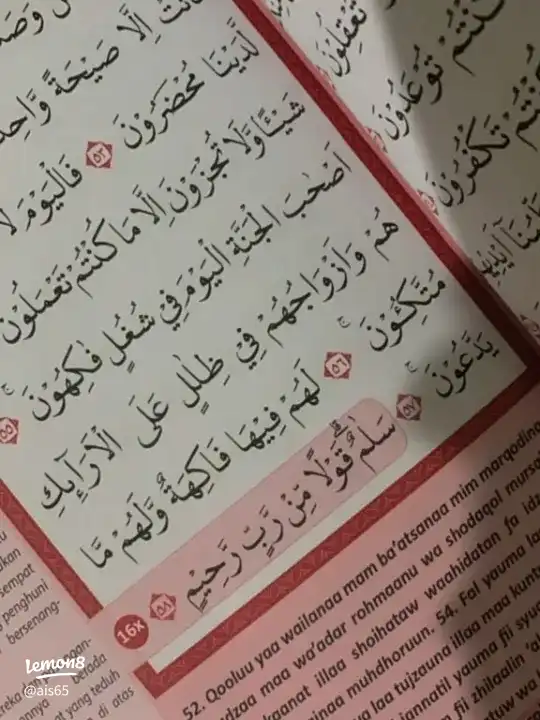 كَانَتْ اِلَّا صَيْحَةً وَّاحِدَةً
لَّدَيْنَا مُحْضَرُوْنَ ٥٣ فَالْيَوْمَ لَا
شَيْـًٔا وَّلَا تُجْزَوْنَ اِلَّا مَا كُنْتُمْ تَعْمَلُوْنَ
اَصْحٰبَ الْجَنَّةِ الْيَوْمَ فِيْ شُغُلٍ فٰكِهُوْنَ ۚ ٥٥
هُمْ وَاَزْوَاجُهُمْ فِيْ ظِلٰلٍ عَلَى الْاَرَاۤىِٕكِ
مُتَّكِـُٔوْنَ ۚ ٥٦ لَهُمْ فِيْهَا فَاكِهَةٌ وَّلَهُمْ مَّا
يَدَّعُوْنَ ۚ ٥٧
سَلٰمٌۗ قَوْلًا مِّنْ رَّبٍّ رَّحِيْمٍ ٥٨ 16x
تَعْقِلُوْنَ
كُنْتُمْ تُوْعَدُوْنَ
كُنْتُمْ تَكْفُرُوْنَ
52. Qooluu yaa wailanaa mam ba'atsanaa mim marqodina
maa wa'adar rohmaanu wa shodaqol mursa
kaanat illaa shoihataw waahidatan fa idz
muhdhoruun. 54. Fal yauma la
laa tujzauna illaa maa kunt
yauma fii syu
fii zhilaalin 'al
penghuni
bersenang-
yang teduh
di atas
Lemon8
@ais65